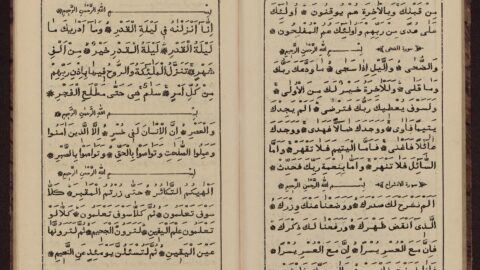 من قبلك وبالاخرة هم يوقنون ۞ اولئك
على هدى من ربهم واولئك هم المفلحون ۞
سورة الضحى بسم الله الرحمن الرحيم
والضحى ۞ واليل اذا سجى ۞ ما ودعك ربك
وما قلى ۞ وللاخرة خير لك من الاولى ۞
ولسوف يعطيك ربك فترضى ۞ الم يجدك
يتيما فاوى ۞ ووجدك ضالا فهدى ۞ ووجدك
عائلا فاغنى ۞ فاما اليتيم فلا تقهر ۞ واما
السائل فلا تنهر ۞ واما بنعمة ربك فحدث ۞
سورة الانشراح بسم الله الرحمن الرحيم
الم نشرح لك صدرك ۞ ووضعنا عنك وزرك ۞
الذى انقض ظهرك ۞ ورفعنا لك ذكرك ۞
فان مع العسر يسرا ۞ ان مع العسر يسرا ۞
بسم الله الرحمن الرحيم
انا انزلنه فى ليلة القدر ۞ وما ادريك ما
ليلة القدر ۞ ليلة القدر خير ۞ من الف
شهر ۞ تنزل الملئكة والروح فيها باذن ربهم
من كل امر ۞ سلم هى حتى مطلع الفجر ۞
بسم الله الرحمن الرحيم
والعصر ۞ ان الانسان لفى خسر ۞ الا الذين امنوا
وعملوا الصلحت وتواصوا بالحق ۞ وتواصوا بالصبر ۞
بسم الله الرحمن الرحيم
الهيكم التكاثر ۞ حتى زرتم المقبر ۞ كلا
سوف تعلمون ۞ ثم كلا سوف تعلمون ۞ كلا لو
تعلمون علم اليقين ۞ لترون الجحيم ۞ ثم لترونها
عين اليقين ۞ ثم لتسئلن يومئذ عن النعيم ۞